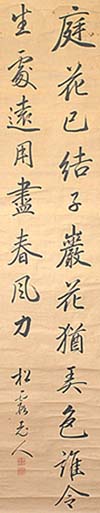 庭花已結子巖花猶弄色誰令
生處遠用盡春風力
松霱老人